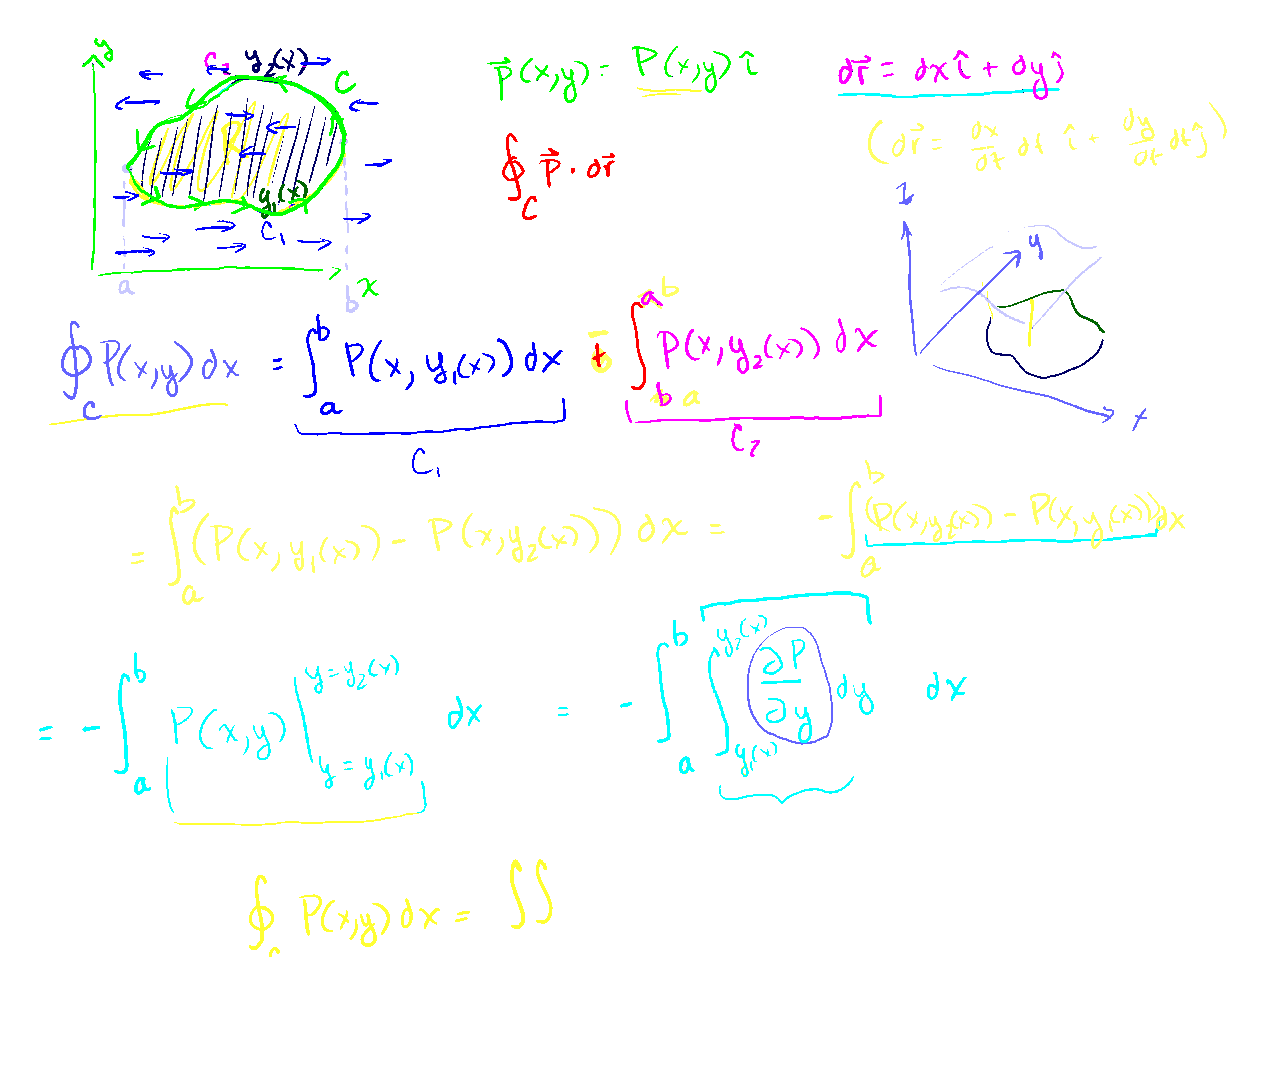 y C₂ y₂(x) C
R
y₁(x)
C₁
a b x
P⃗(x,y) = P(x,y) î
dr⃗ = dx î + dy ĵ
(dr⃗ = dx/dt dt î + dy/dt dt ĵ)
∮_C P⃗ · dr⃗
z y x
∮_C P(x,y) dx = ∫_a^b P(x, y₁(x)) dx + ∫_b^a P(x, y₂(x)) dx
− b a
C₁ C₂
= ∫_a^b (P(x, y₁(x)) − P(x, y₂(x))) dx = − ∫_a^b (P(x,y₂(x)) − P(x,y₁(x))) dx
= − ∫_a^b P(x,y) |_{y = y₁(x)}^{y = y₂(x)} dx = − ∫_a^b ∫_{y₁(x)}^{y₂(x)} ∂P/∂y dy dx
∮_C P(x,y) dx = ∫∫